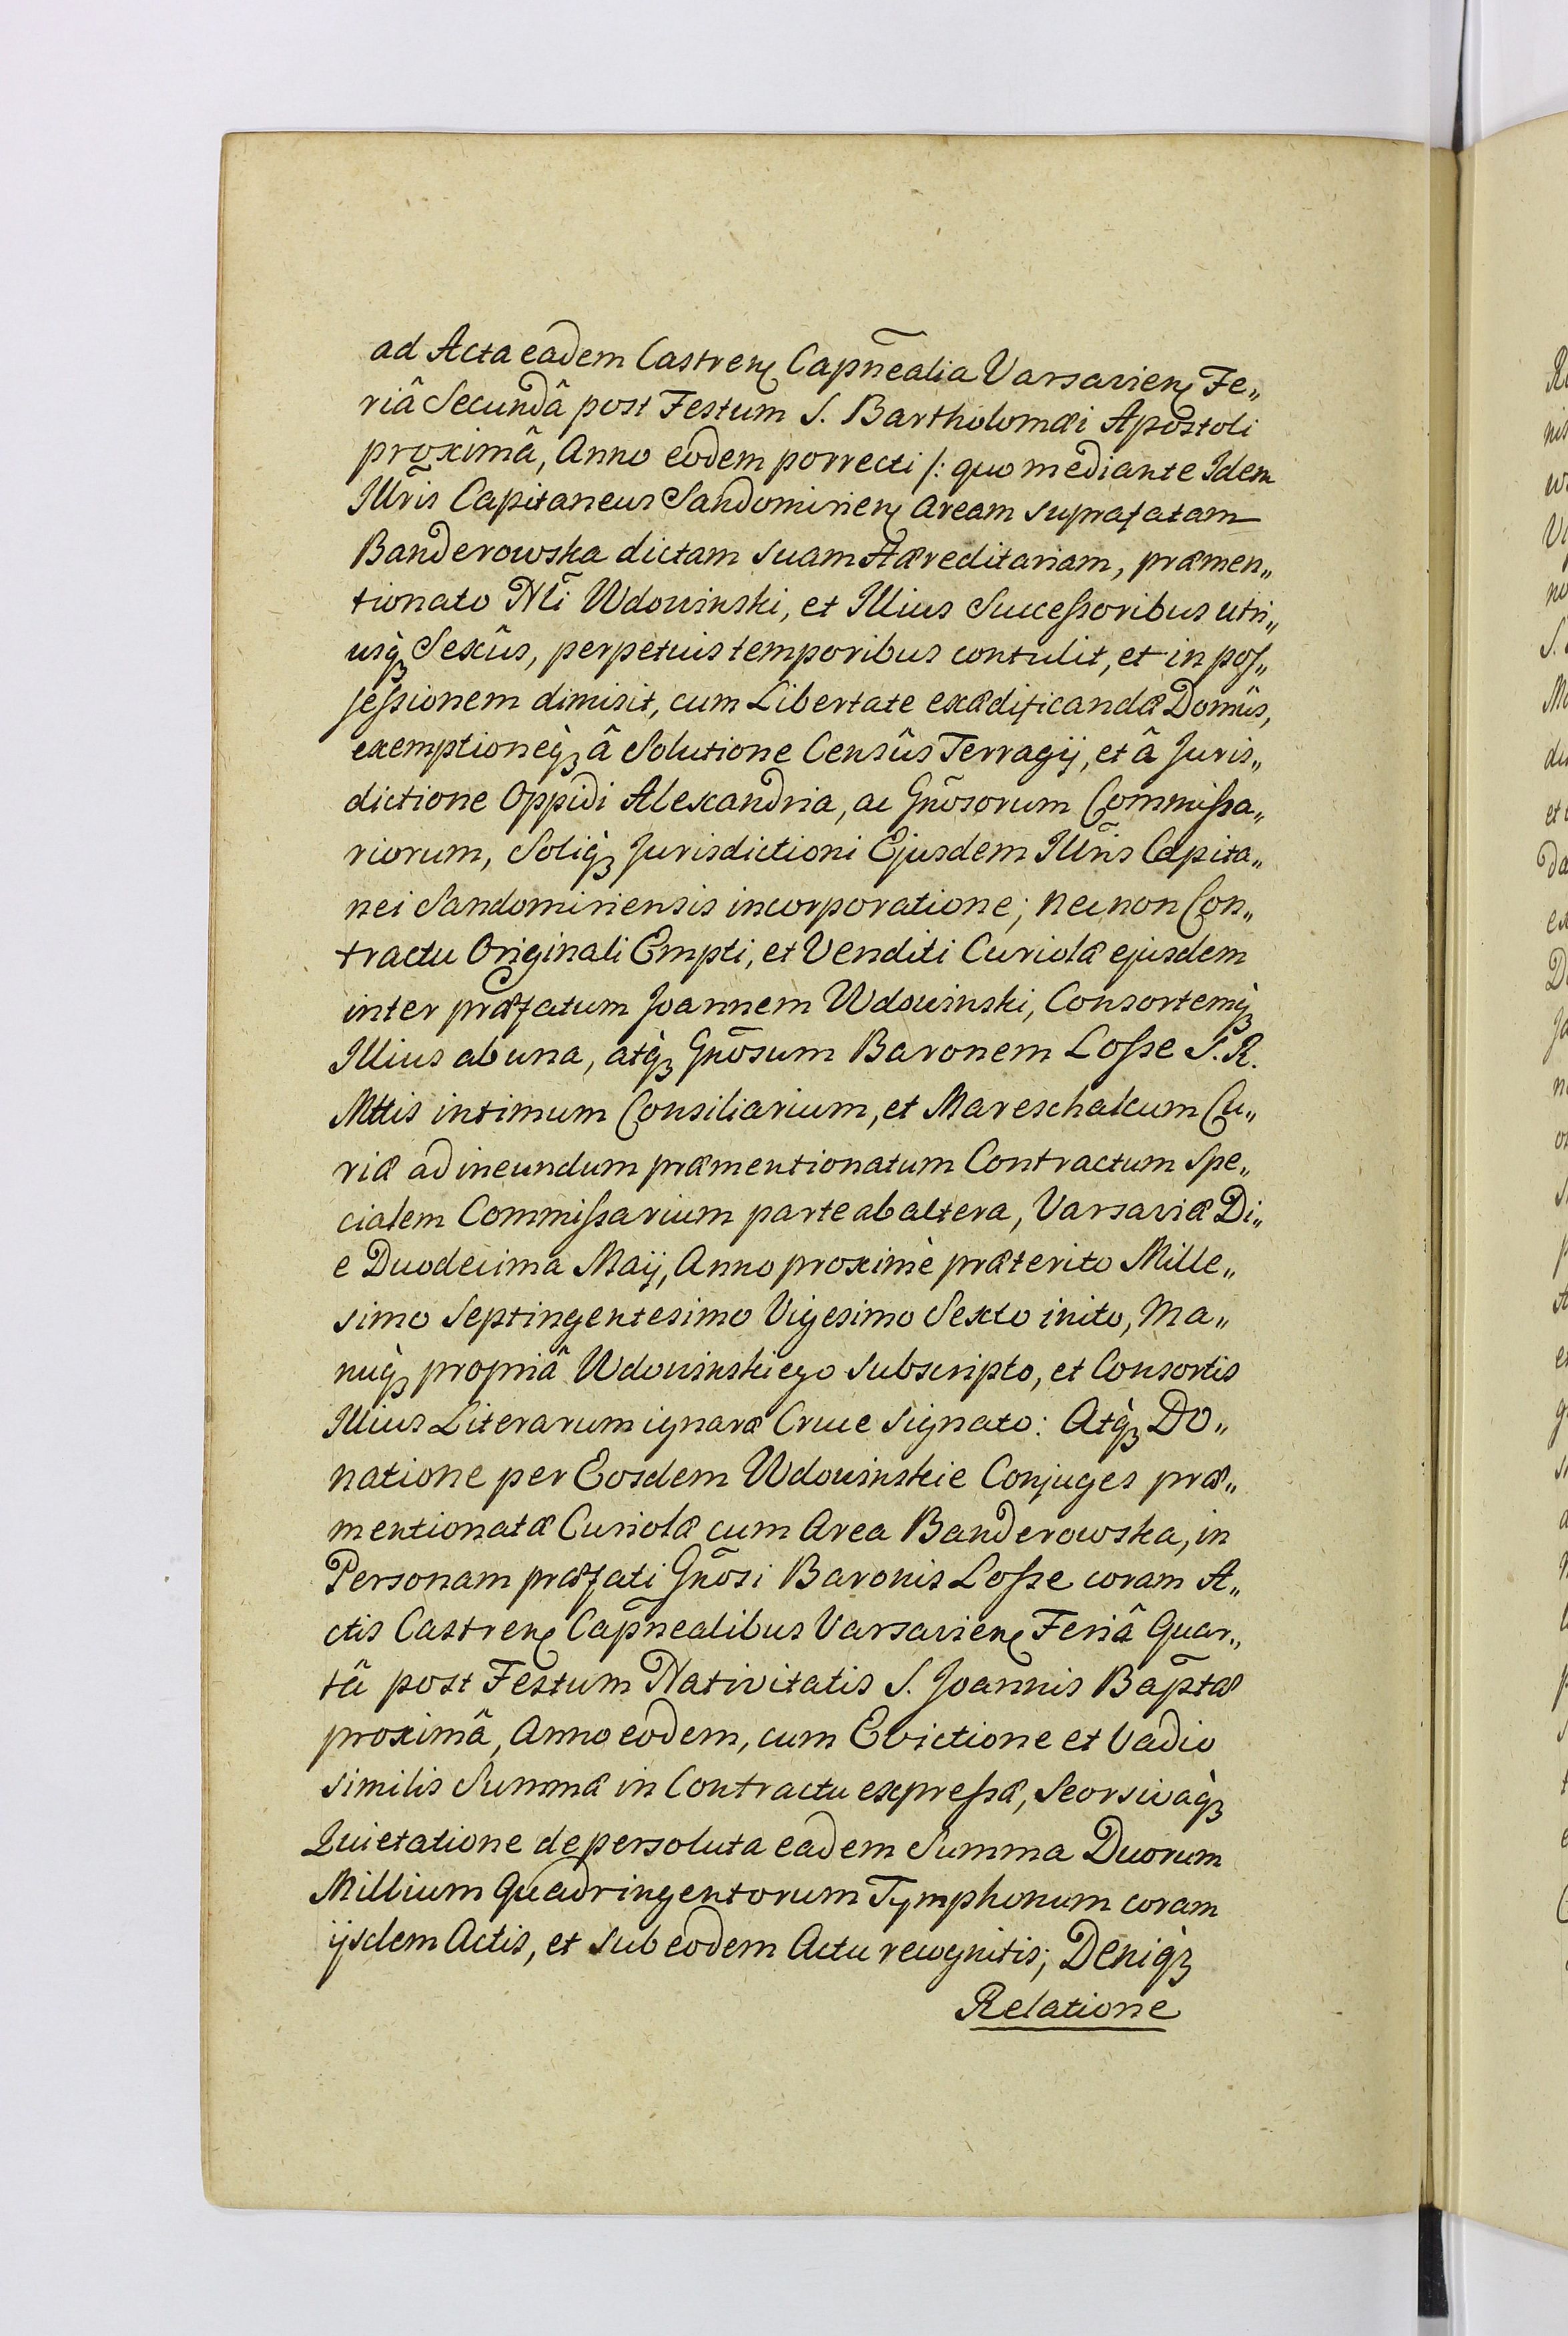 ad Acta eadem Castren̄ Capn̄ealia Varsavien̄ Fe„
riâ Secundâ post Festum S. Bartholomæi Apostoli
proximâ, Anno eodem porrecti /: quo mediante Idem
Illr̄is Capitaneus Sandomirien̄ Aream suprafatam
Banderowska dictam suam Hæreditariam, præmen„
tionato Nl̄i Wdowinski, et Illius Successoribus utri„
usq̀ꝫ Sexûs, perpetuis temporibus contulit, et in pos„
sessionem dimisit, cum Libertate exædificandæ Domûs,
exemptioneq̀ꝫ â Solutione Censûs Terragij, et â Juris„
dictione Oppidi Alexandria, ac Gn̄osorum Commissa„
riorum, Soliq̀ꝫ Jurisdictioni Ejusdem Illr̄is Capita„
nei Sandomiriensis incorporatione; nec non Con„
tractu Originali Empti, et Venditi Curiolæ ejusdem
inter præfatum Joannem Wdowinski, Consortemq̀ꝫ
Illius ab una, atq̀ꝫ Gn̄osum Baronem Losse S. R.
Mttis intimum Consiliarium, et Mareschalcum Cu„
riæ ad ineundum præmentionatum Contractum Spe„
cialem Commissarium parte ab altera, Varsaviæ Di„
e Duodecima Maij, Anno proximè præterito Mille„
simo Septingentesimo Vigesimo Sexto inito, Ma„
nuq̀ꝫ propriâ Wdowinskiego subscripto, et Consortis
Illius Literarum ignaræ Cruce signato: Atq̀ꝫ Do„
natione per Eosdem Wdowinskie Conjuges præ„
mentionatæ Curiolæ cum Area Banderowska, in
Personam præfati Gn̄osi Baronis Losse coram A„
ctis Castren̄ Capn̄ealibus Varsavien̄ Feriâ Quar„
tâ post Festum Nativitatis S. Joannis Bap̄tæ
proximâ, Anno eodem, cum Evictione et Vadio
similis Summæ in Contractu expressæ, Seorsivaq̀ꝫ
Quietatione de persoluta eadem Summa Duorum
Millium Quadringentorum Tymphonum coram
ijsdem Actis, et sub eodem Actu recognitis; Deniq̀ꝫ
Relatione